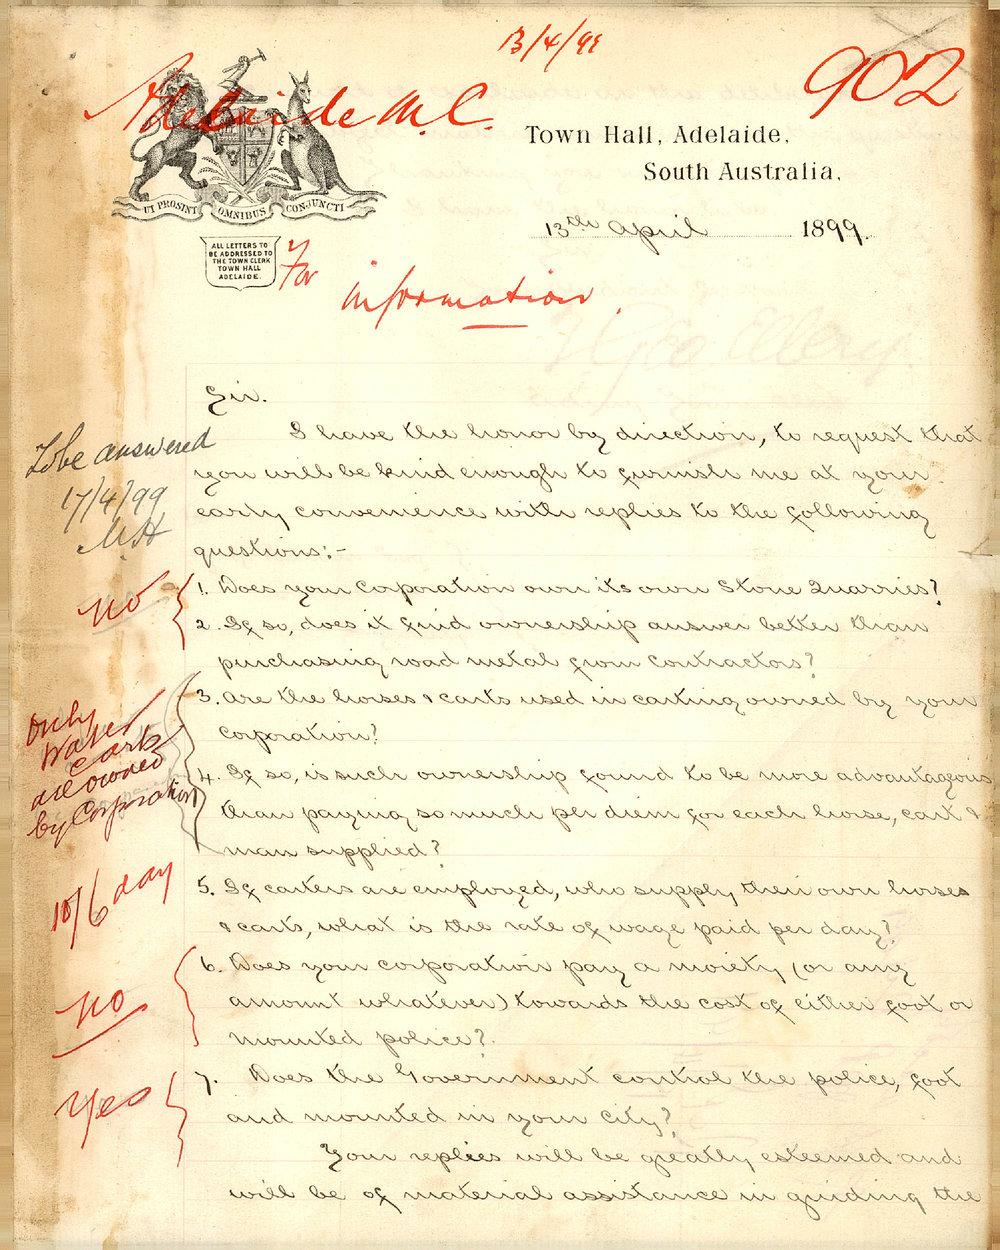 13/4/99
902
Adelaide M.C.
Town Hall, Adelaide,
South Australia,
UT PROSINT OMNIBUS CONJUNCTI
13th April 1899.
ALL LETTERS TO
BE ADDRESSED TO
THE TOWN CLERK
TOWN HALL
ADELAIDE.
For
information.
Sir.
I have the honor by direction, to request that
you will be kind enough to furnish me at your
early convenience with replies to the following
questions:-
To be answered
17/4/99
M.H
1. Does your Corporation own its own Stone Quarries?
2. If so, does it find ownership answer better than
purchasing road metal from Contractors?
no
3. Are the horses & carts used in carting owned by your
Corporation?
4. If so, is such ownership found to be more advantageous
than paying so much per diem for each horse, cart &
man supplied?
Only
Water
carts
are owned
by Corporation
5. If carters are employed, who supply their own horses
& carts, what is the rate of wage paid per day?
10/6 day
6. Does your corporation pay a moiety (or any
amount whatever) towards the cost of either foot or
mounted police?
no
7. Does the Government control the police, foot
and mounted in your city?
Yes
Your replies will be greatly esteemed and
will be of material assistance in guiding the